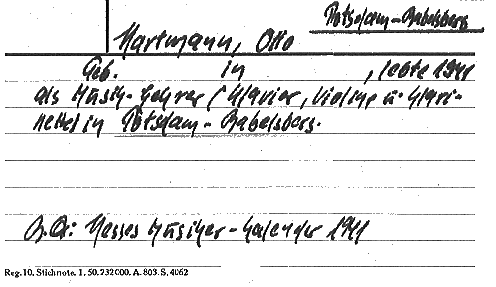 Potsdam-Babelsberg
Hartmann, Otto
Geb. in , lebte 1941
als Musik-Lehrer (Klavier, Violine u. Klari-
nette) in Potsdam-Babelsberg.
B.Qu: Hesses Musiker-Kalender 1941
Reg. 10. Stichnote. 1. 50. 232000. A. 803. S. 4062